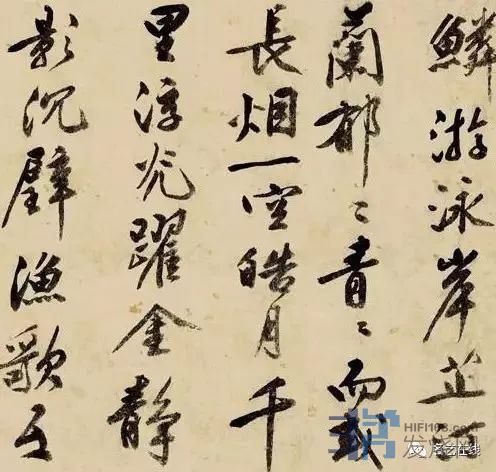 鱗游泳岸芷汀
蘭郁〻青〻而或
長烟一空皓月千
里浮光躍金静
影沉璧漁歌互
HIFI168.COM